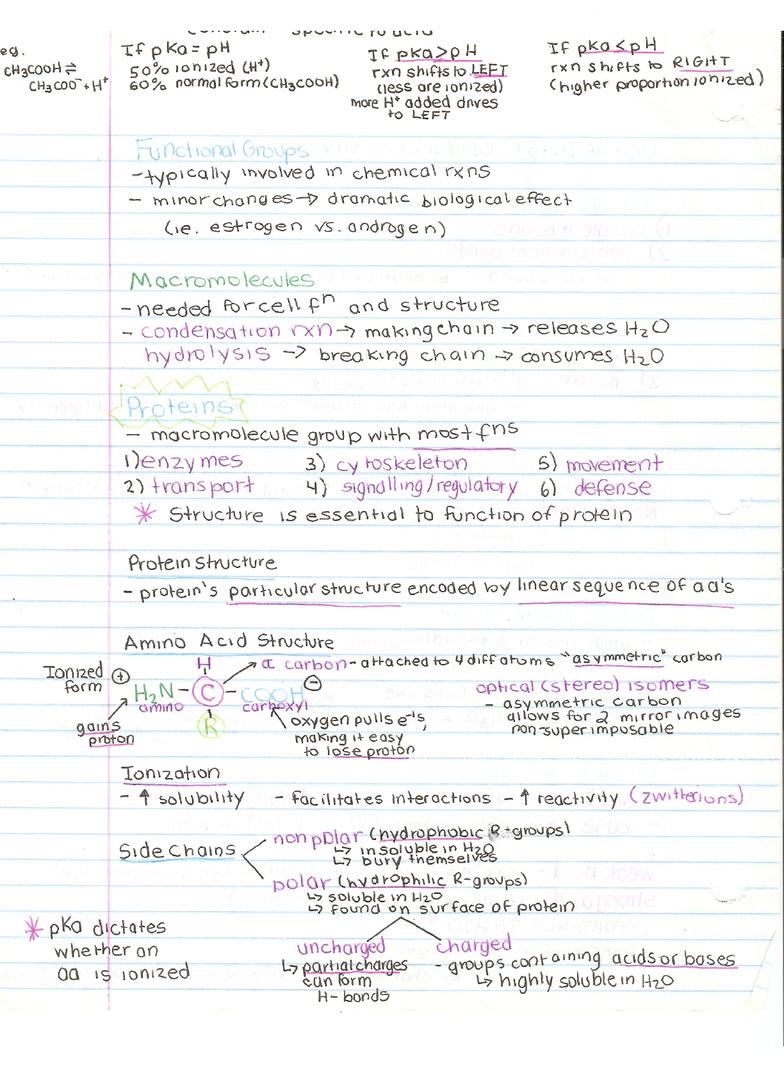 constant specific to acid
eg.
CH3COOH ⇌
CH3COO⁻ + H⁺
If pKa = pH
50% ionized (H⁺)
60% normal form (CH3COOH)
If pKa > pH
rxn shifts to LEFT
(less are ionized)
more H⁺ added drives
to LEFT
If pKa < pH
rxn shifts to RIGHT
(higher proportion ionized)
Functional Groups
- typically involved in chemical rxns
- minor changes → dramatic biological effect
(ie. estrogen vs. androgen)
Macromolecules
- needed for cell fⁿ and structure
- condensation rxn → making chain → releases H2O
hydrolysis → breaking chain → consumes H2O
Proteins
- macromolecule group with most fns
1) enzymes 3) cytoskeleton 5) movement
2) transport 4) signalling/regulatory 6) defense
* Structure is essential to function of protein
Protein Structure
- protein's particular structure encoded by linear sequence of aa's
Amino Acid Structure
Ionized form
+
H2N - C - COOH
H
R
-
amino
carboxyl
gains
proton
α carbon - attached to 4 diff atoms "asymmetric" carbon
oxygen pulls e⁻'s,
making it easy
to lose proton
optical (stereo) isomers
- asymmetric carbon
allows for 2 mirror images
non-superimposable
Ionization
- ↑ solubility - facilitates interactions - ↑ reactivity (zwitterions)
Side Chains
nonpolar (hydrophobic R-groups)
↳ insoluble in H2O
↳ bury themselves
polar (hydrophilic R-groups)
↳ soluble in H2O
↳ found on surface of protein
uncharged
↳ partial charges
can form
H-bonds
charged
- groups containing acids or bases
↳ highly soluble in H2O
* pKa dictates
whether an
aa is ionized